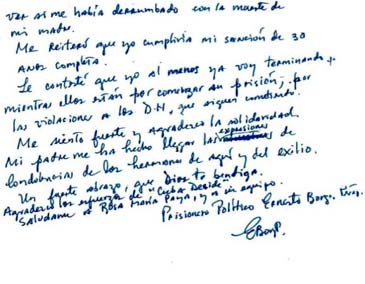 ver si me había derrumbado con la muerte de
mi madre.
Me reiteró que yo cumpliría mi sanción de 30
años completa.
Le contesté que yo al menos ya voy terminando,
mientras ellos están por comenzar su prisión, por
las violaciones a los DH, que siguen cometiendo.
Me siento fuerte y agradezco la solidaridad.
Mi padre me ha hecho llegar las expresiones de
condolencias de los hermanos de aquí y del exilio.
Un fuerte abrazo, que Dios te bendiga.
Agradezco los esfuerzos de "Cuba Decide"
Saludame a Rosa María Payá, y a su equipo.
Prisionero Político Ernesto Borges
EBorgP.